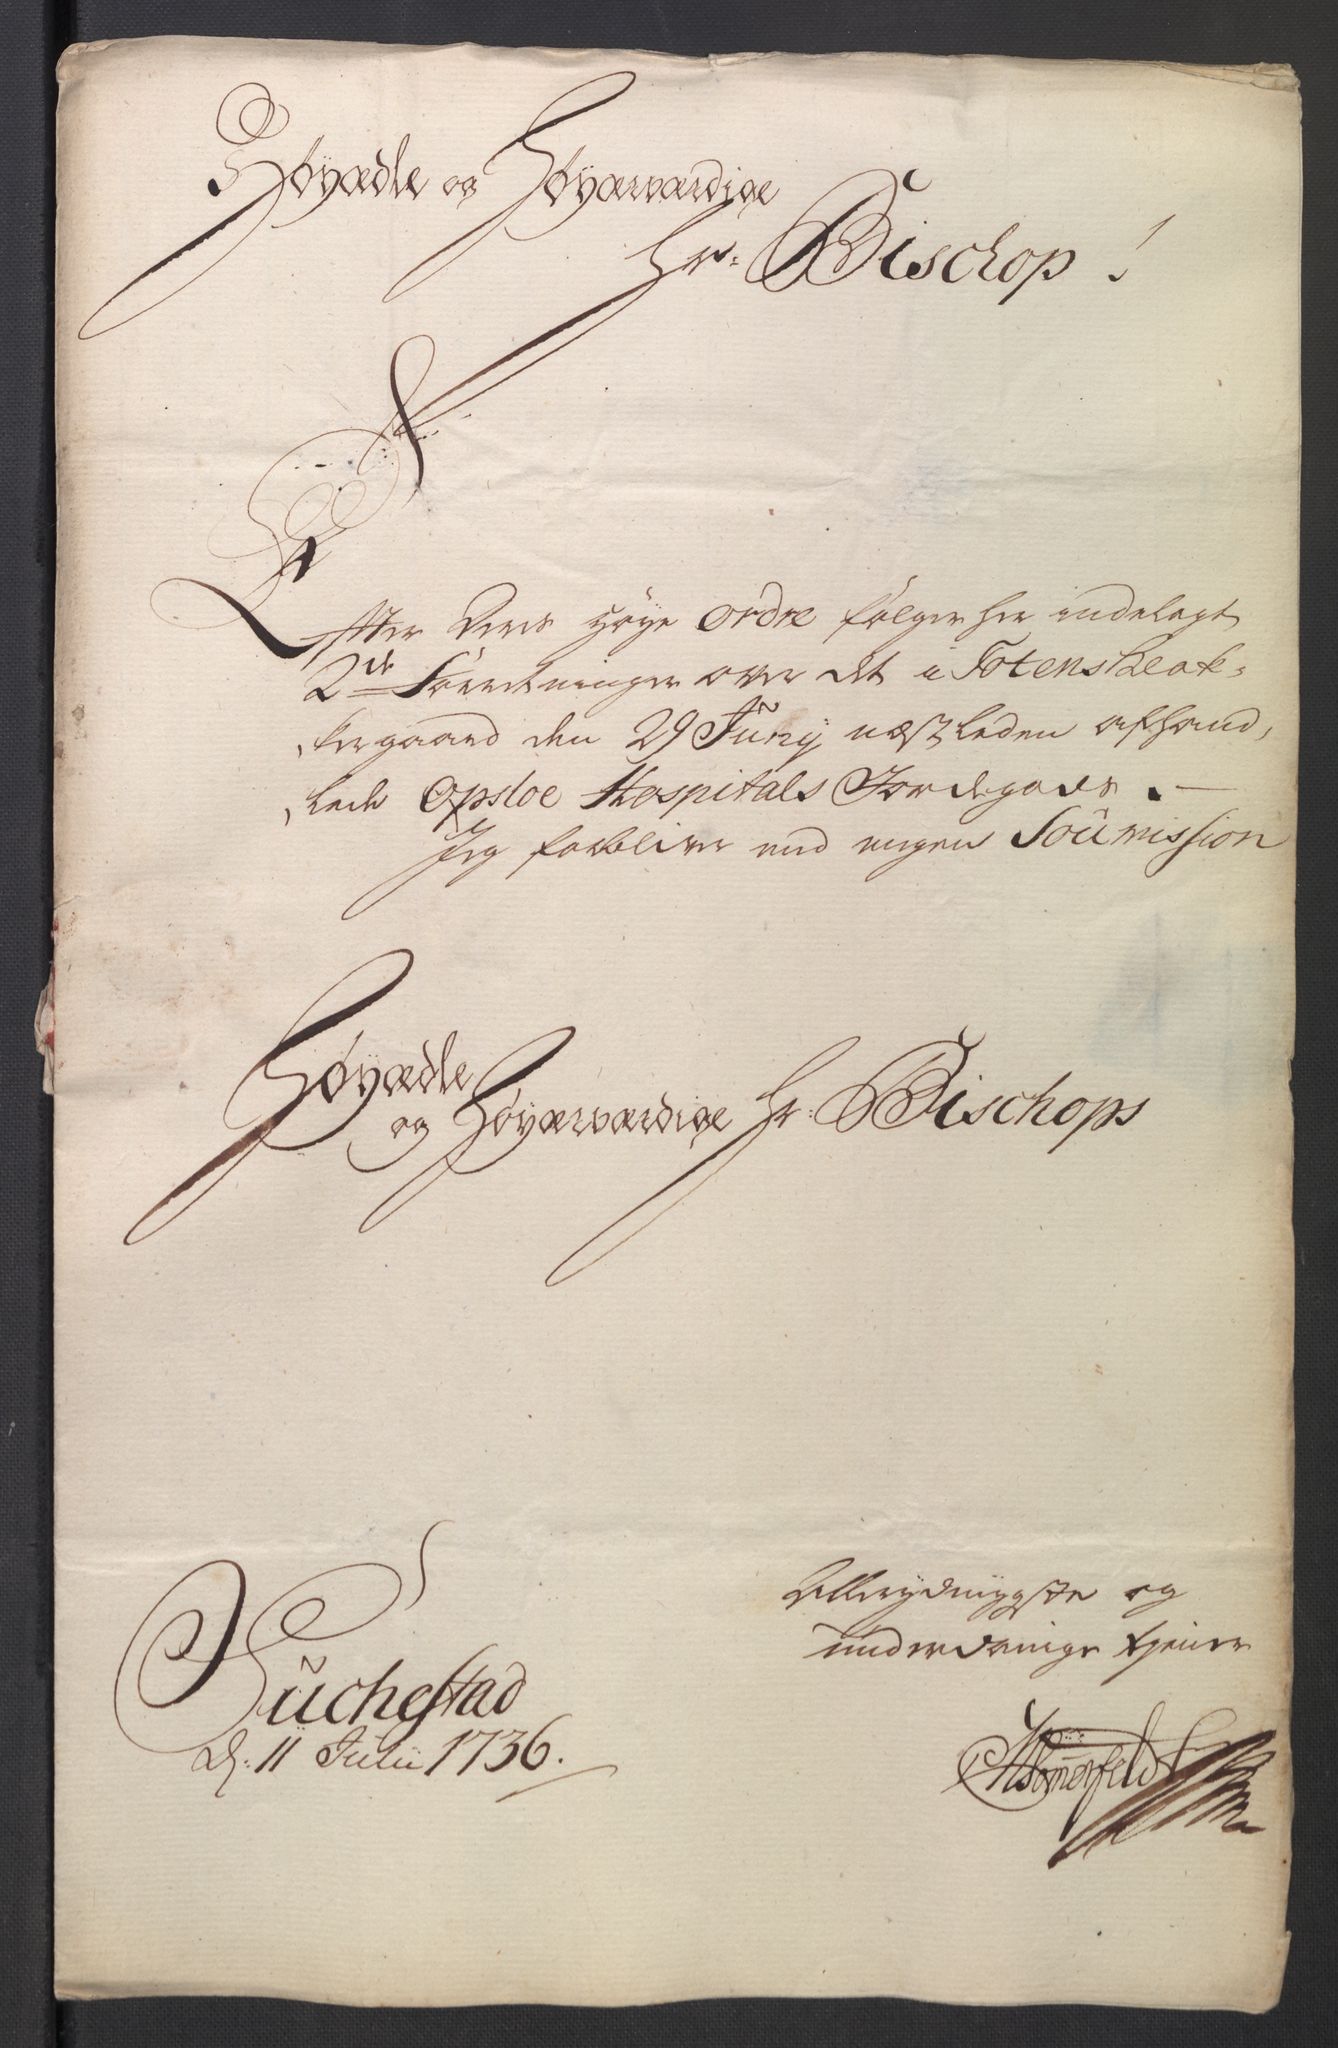 Höyædle og Höyærværdige
Hr. Bischop!
Effter Deris Höye Ordre fölger her indelagt
2de Forretninger over det i Totens Leck-
kergaard den 29 Juny næstleden afhand-
lede Opsloe Hospitals Jordegods.
Jeg forbliver med megen Soumission
Höyædle
og Höyærværdige Hr. Bischops
Suchestad
d. 11 Julii 1736.
Allerydmygste og
underdanige tiener
Sommerfeldt